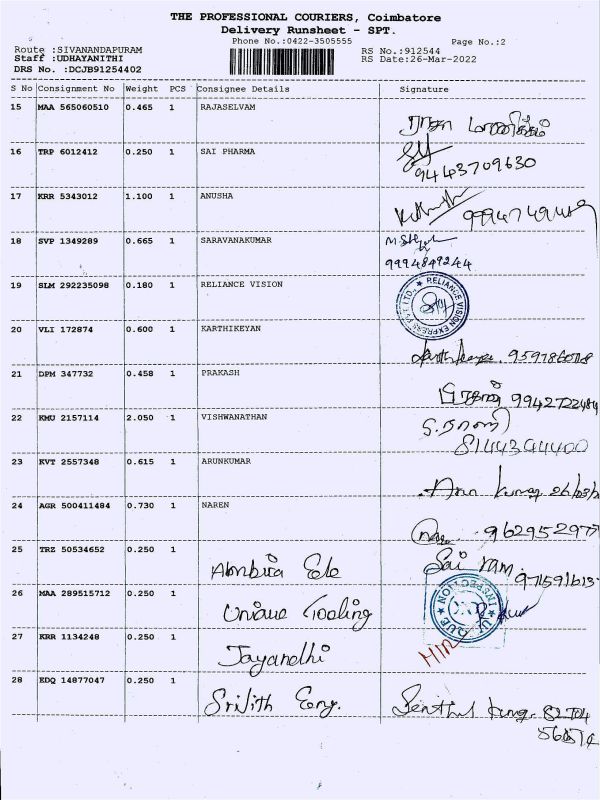 THE PROFESSIONAL COURIERS, Coimbatore
Delivery Runsheet - SPT.
Phone No.:0422-3505555 Page No.:2
Route :SIVANANDAPURAM RS No.:912544
Staff :UDHAYANITHI RS Date:26-Mar-2022
DRS No. :DCJB91254402
S No Consignment No Weight PCS Consignee Details Signature
15 MAA 565060510 0.465 1 RAJASELVAM
ராஜா மாணிக்கம்
16 TRP 6012412 0.250 1 SAI PHARMA
9443709630
17 KRR 5343012 1.100 1 ANUSHA
18 SVP 1349289 0.665 1 SARAVANAKUMAR
9994849244
19 SLM 292235098 0.180 1 RELIANCE VISION
RELIANCE VISION EXPRESS PVT LTD.
20 VLI 172874 0.600 1 KARTHIKEYAN
21 DPM 347732 0.458 1 PRAKASH
9942722484
22 KMU 2157114 2.050 1 VISHWANATHAN
8144344400
23 KVT 2557348 0.615 1 ARUNKUMAR
Arun kumar 26/03/2
24 AGR 500411484 0.730 1 NAREN
962952977
25 TRZ 50534652 0.250 1 Sai ram.
26 MAA 289515712 0.250 1 Unique Tooling
27 KRR 1134248 0.250 1 Jayandhi
28 EDQ 14877047 0.250 1 Srijith Eng. Senthil kumar 82704